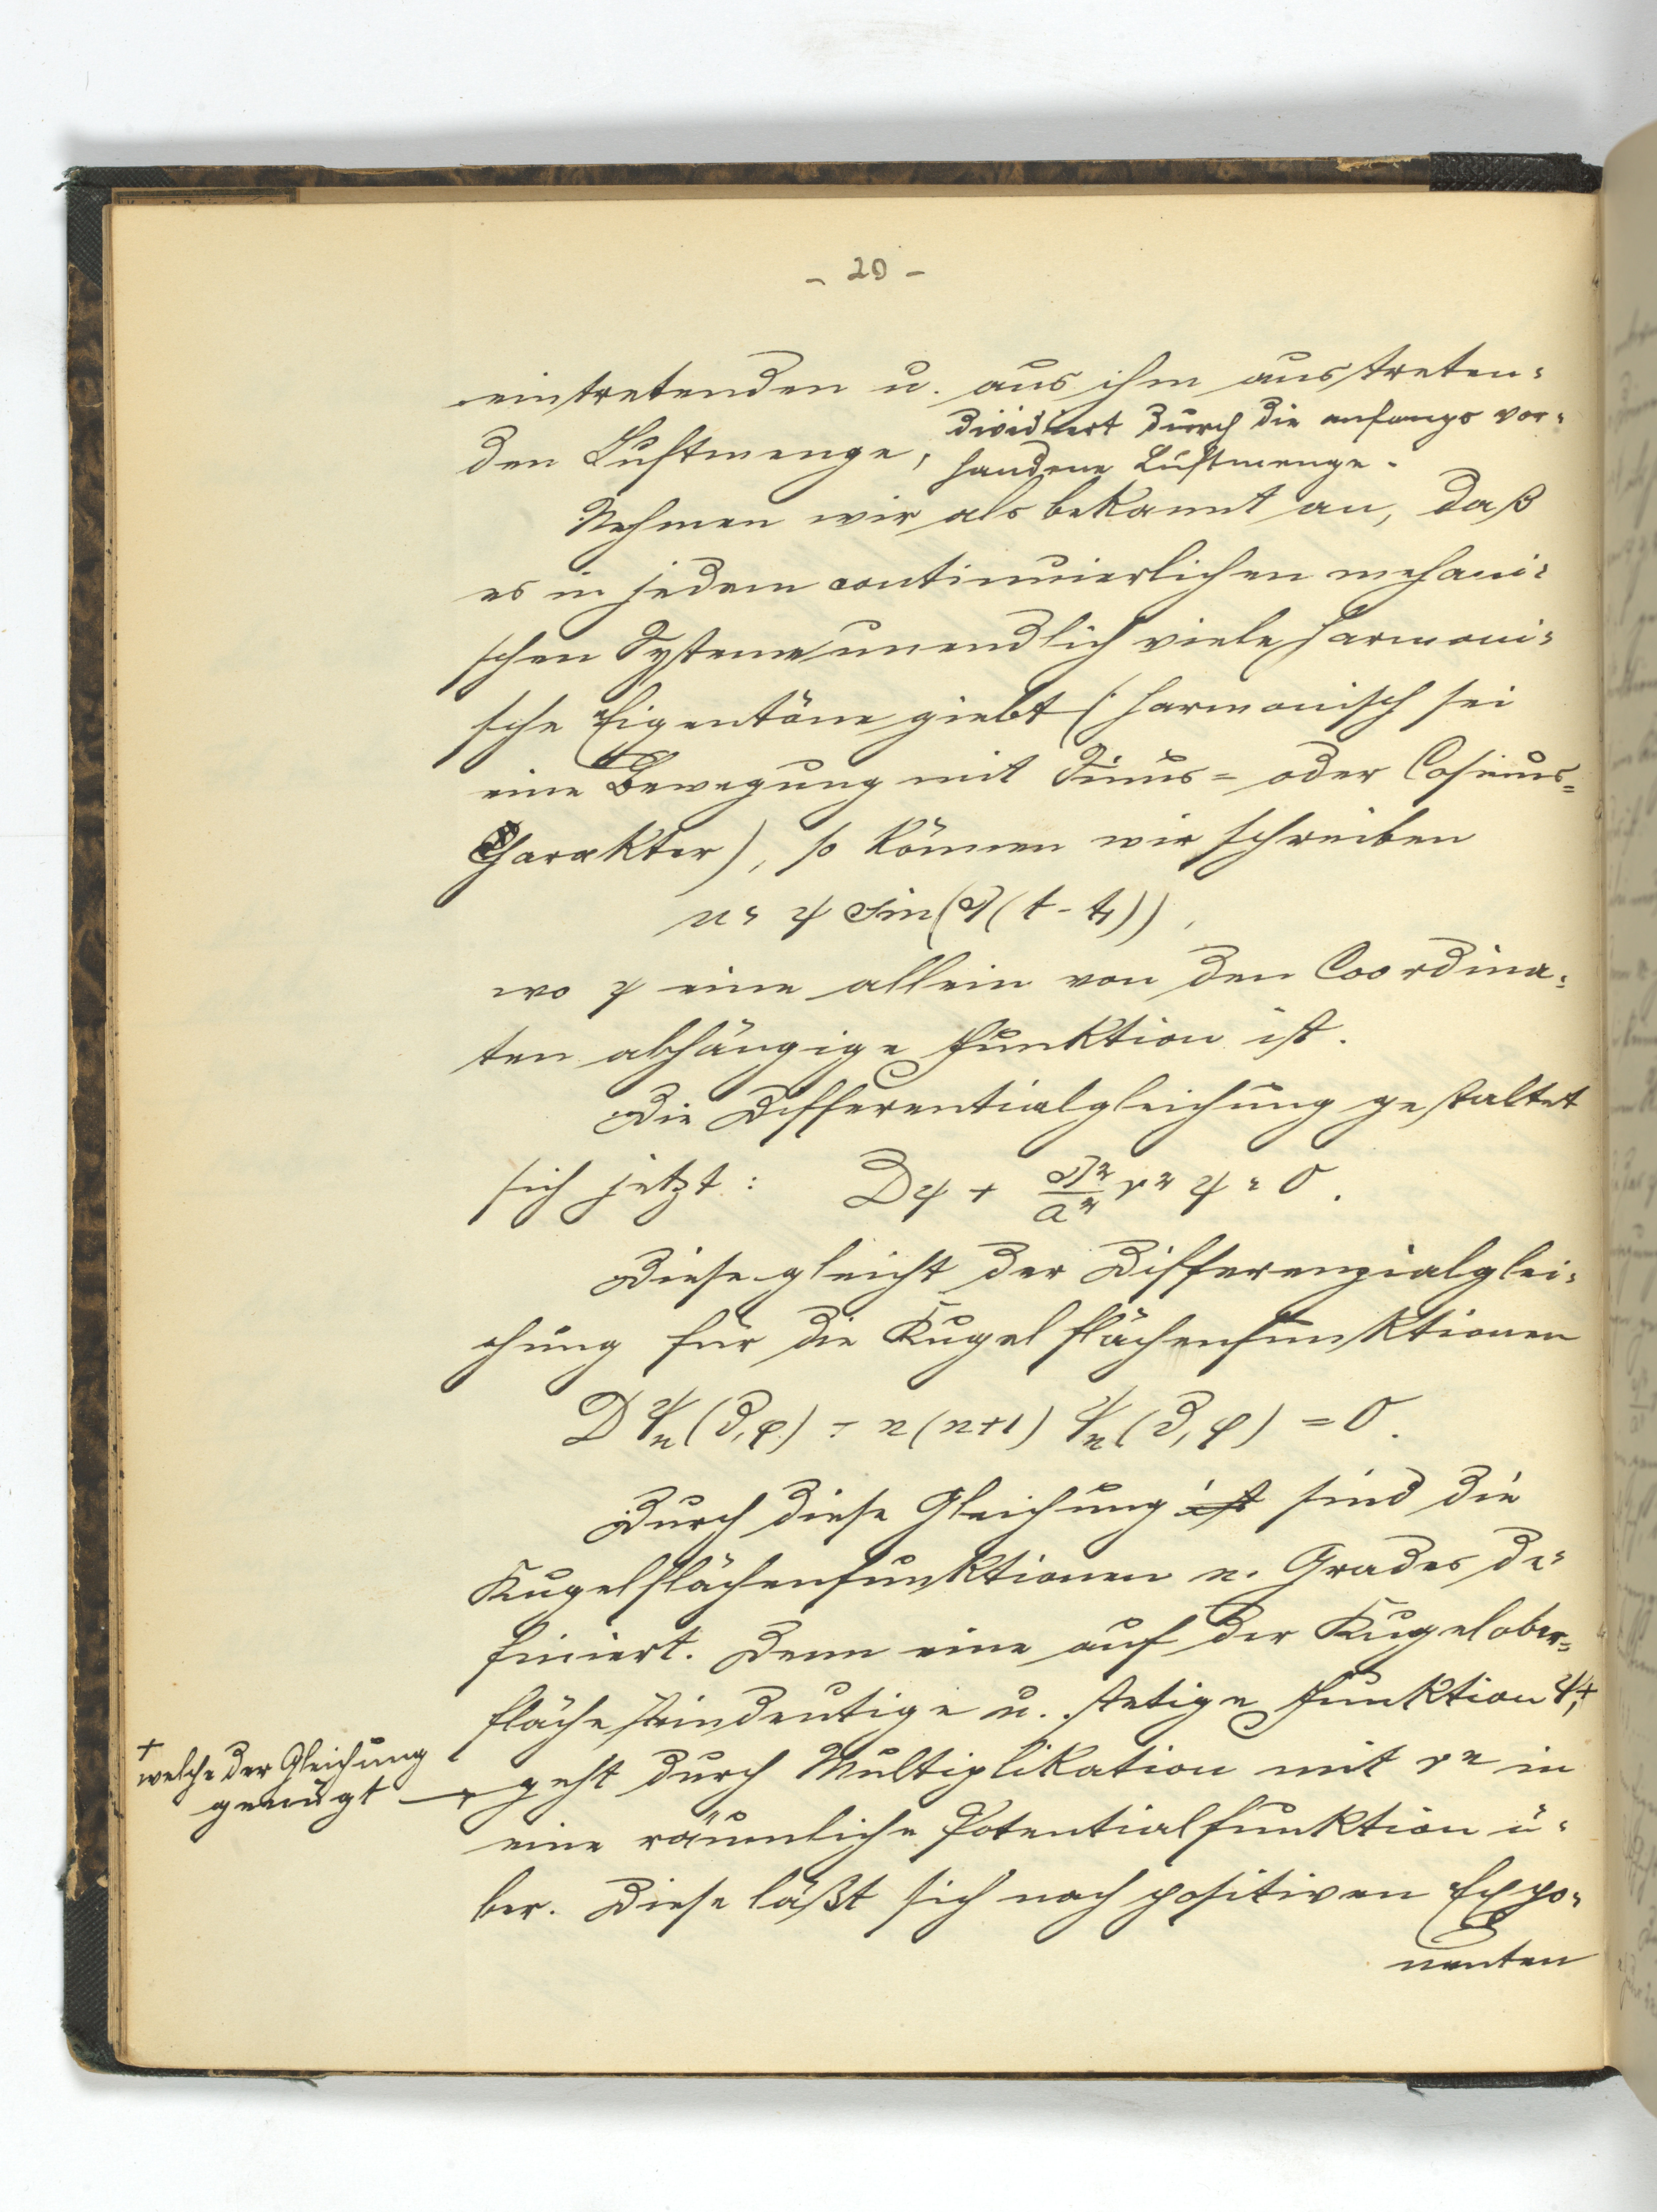 - 20 -
eintretenden u. aus ihm austreten-
den Luftmenge, dividiert durch die anfangs vor-
handene Luftmenge.
Nehmen wir als bekannt an, daß
es in jedem continuierlichen mechani-
schen Systeme unendlich viele harmoni-
sche Eigentöne giebt (harmonisch sei
eine Bewegung mit Sinus- oder Cosinus-
Charakter), so können wir schreiben
u = ψ sin(λ(t - t₁)),
wo ψ eine allein von den Coordina-
ten abhängige Funktion ist.
Die Differentialgleichung gestaltet
sich jetzt: Dψ + λ²/a² r² ψ = 0.
Diese gleicht der Differenzialglei-
chung für die Kugelflächenfunktionen
D ψₙ(ϑ, φ) + n(n+1) ψₙ(ϑ, φ) = 0.
Durch diese Gleichung ist sind die
Kugelflächenfunktionen n. Grades de-
finiert. Denn eine auf der Kugelober-
fläche eindeutige u. stetige Funktion ψ,+
+
welche der Gleichung
genügt
geht durch Multiplikation mit rⁿ in
eine räumliche Potentialfunktion ü-
ber. Diese läßt sich nach positiven Expo-
nenten